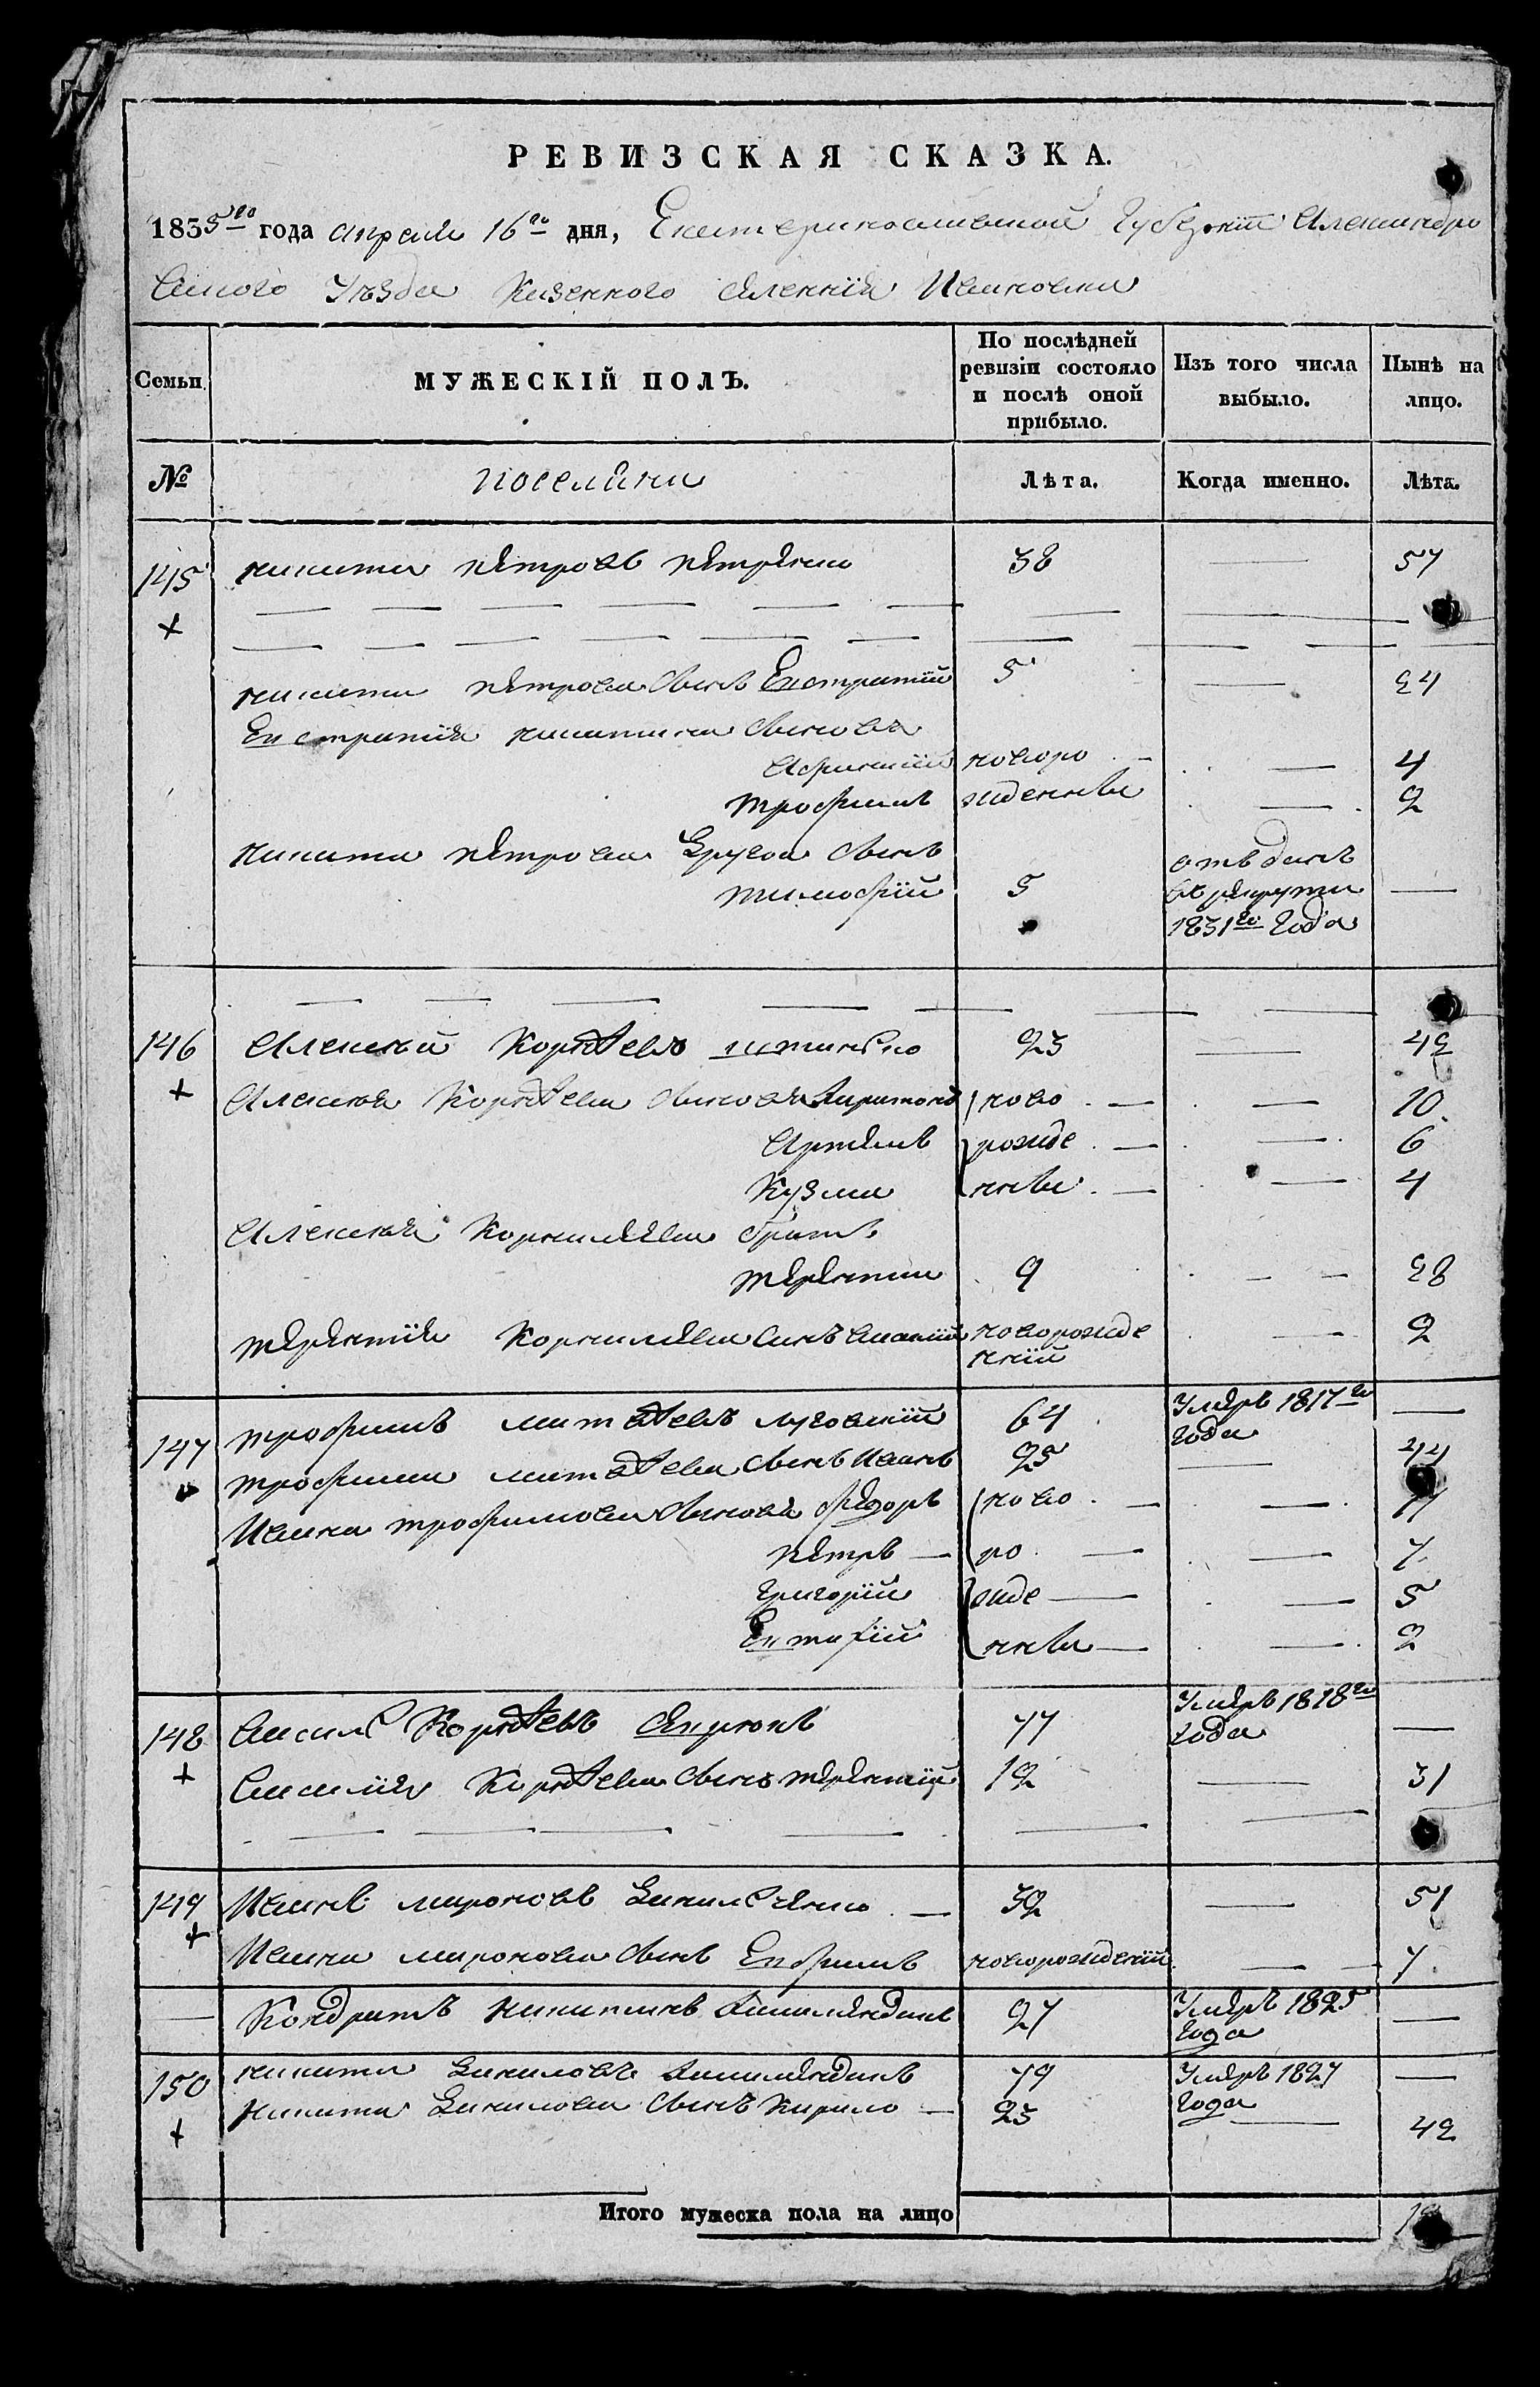 РЕВИЗСКАЯ СКАЗКА.
1835го года апреля 16го дня, Екатеринославской Губернїи Александро
вского Уезда Казенного селенїя Ивановки
Семьи МУЖЕСКІЙ ПОЛЪ. По послѣдней ревизіи состояло и послѣ оной прибыло. Изъ того числа выбыло. Нынѣ на лицо.
№ поселяни Лѣта. Когда именно. Лѣта.
145 никита петровъ петренко 38 — 57
никити петрова сынъ Евстратїй 5 — 24
Евстратїя никитина сынова
новоро — 4
трофимъ жденны — 2
никити петрова другой сынъ отъданъ
тимофїй 5 въ рекруты —
1831го года
146 Алексѣй Корнѣевъ 23 — 42
Алексѣя Корнѣева сынова Харитонъ ново — 10
Артемъ рожде — 6
Кузма нны — 4
Алексѣя Корнилѣева братъ
терентии 9 — 28
терентїя Корнилѣева синъ новорожде — 2
ннїй
147 трофимъ матвѣевъ луговскїй 64 Умеръ 1817го —
года
трофима матвѣева сынъ Иванъ 25 — 44
Ивана трофимова сынова федоръ ново — 11
петръ — ро — 7
григорїй жде — 5
Евтифїй нны — 2
148 Василь Корнѣевъ 77 Умеръ 1818го
года —
Василїя Корнѣева сынъ терентїй 12 — 31
149 Иванъ мироновъ Данильченко — 32 — 51
Ивана миронова сынъ Евфимъ новорожденїй — 7
— Кондратъ никитинъ 27 Умеръ 1825 —
года
150 никита Даниловъ 79 Умеръ 1827 —
года
никити Данилова сынъ Кирило — 23 — 42
Итого мужеска пола на лицо